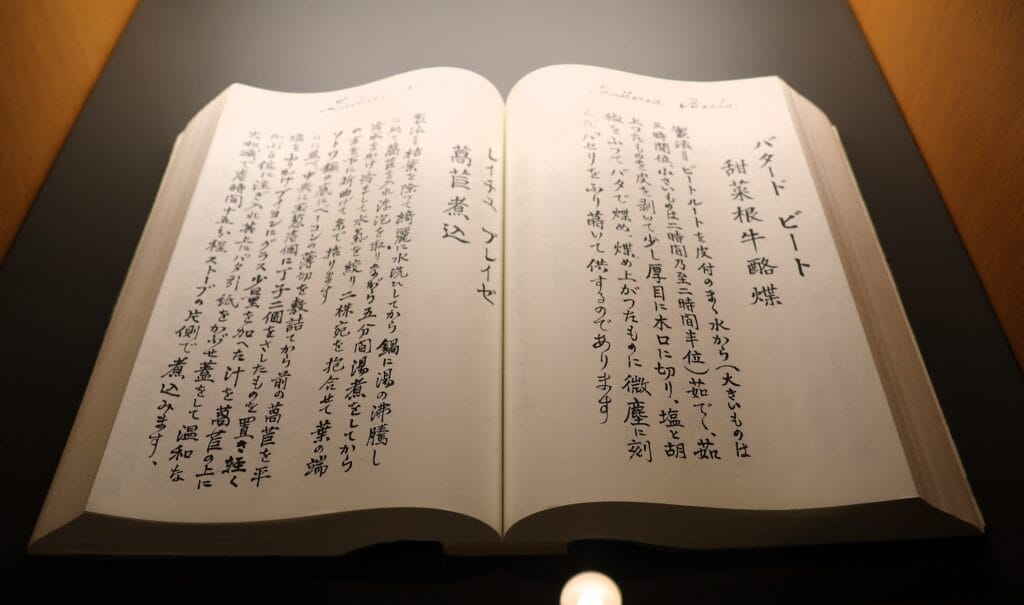 Buttered Beets.
バタード ビート
甜菜根牛酪煠
製法＝ビートルートを皮付のまゝ水から(大きいものは
三時間位小さいものは二時間乃至二時間半位)茹でく、茹
上つたものを皮を剥いて少し厚目に木口に切り、塩と胡
椒をふつて、バタで煠め、煠め上がつたものに微塵に刻
んだパセリをふり蒔いて供するのであります
レイチス ブレイゼ
萵苣煮込
製法＝枯葉を除つて綺麗に水洗ひしてから鍋に湯の沸騰し
に萵苣を入れ浮泡を取りながら五分間湯煮をしてから
冷水をかけ冷まして水気を絞り二株宛を抱合せて葉の端
の方を下に折曲げて糸で括ります
ソトワ鍋の底にベーコンの薄切を敷詰てから前の萵苣を平
に並べ中央に玉葱壱個に丁子二個をさしたものを置き軽く
塩をふりかけブイヨンにグラス少量を加へた汁を萵苣の上に
かぶる位に注ぎ入れ其上にバタ引紙をかぶせ蓋をして温和な
火加減で壱時間十五分程ストーブの片側で煮込みます、